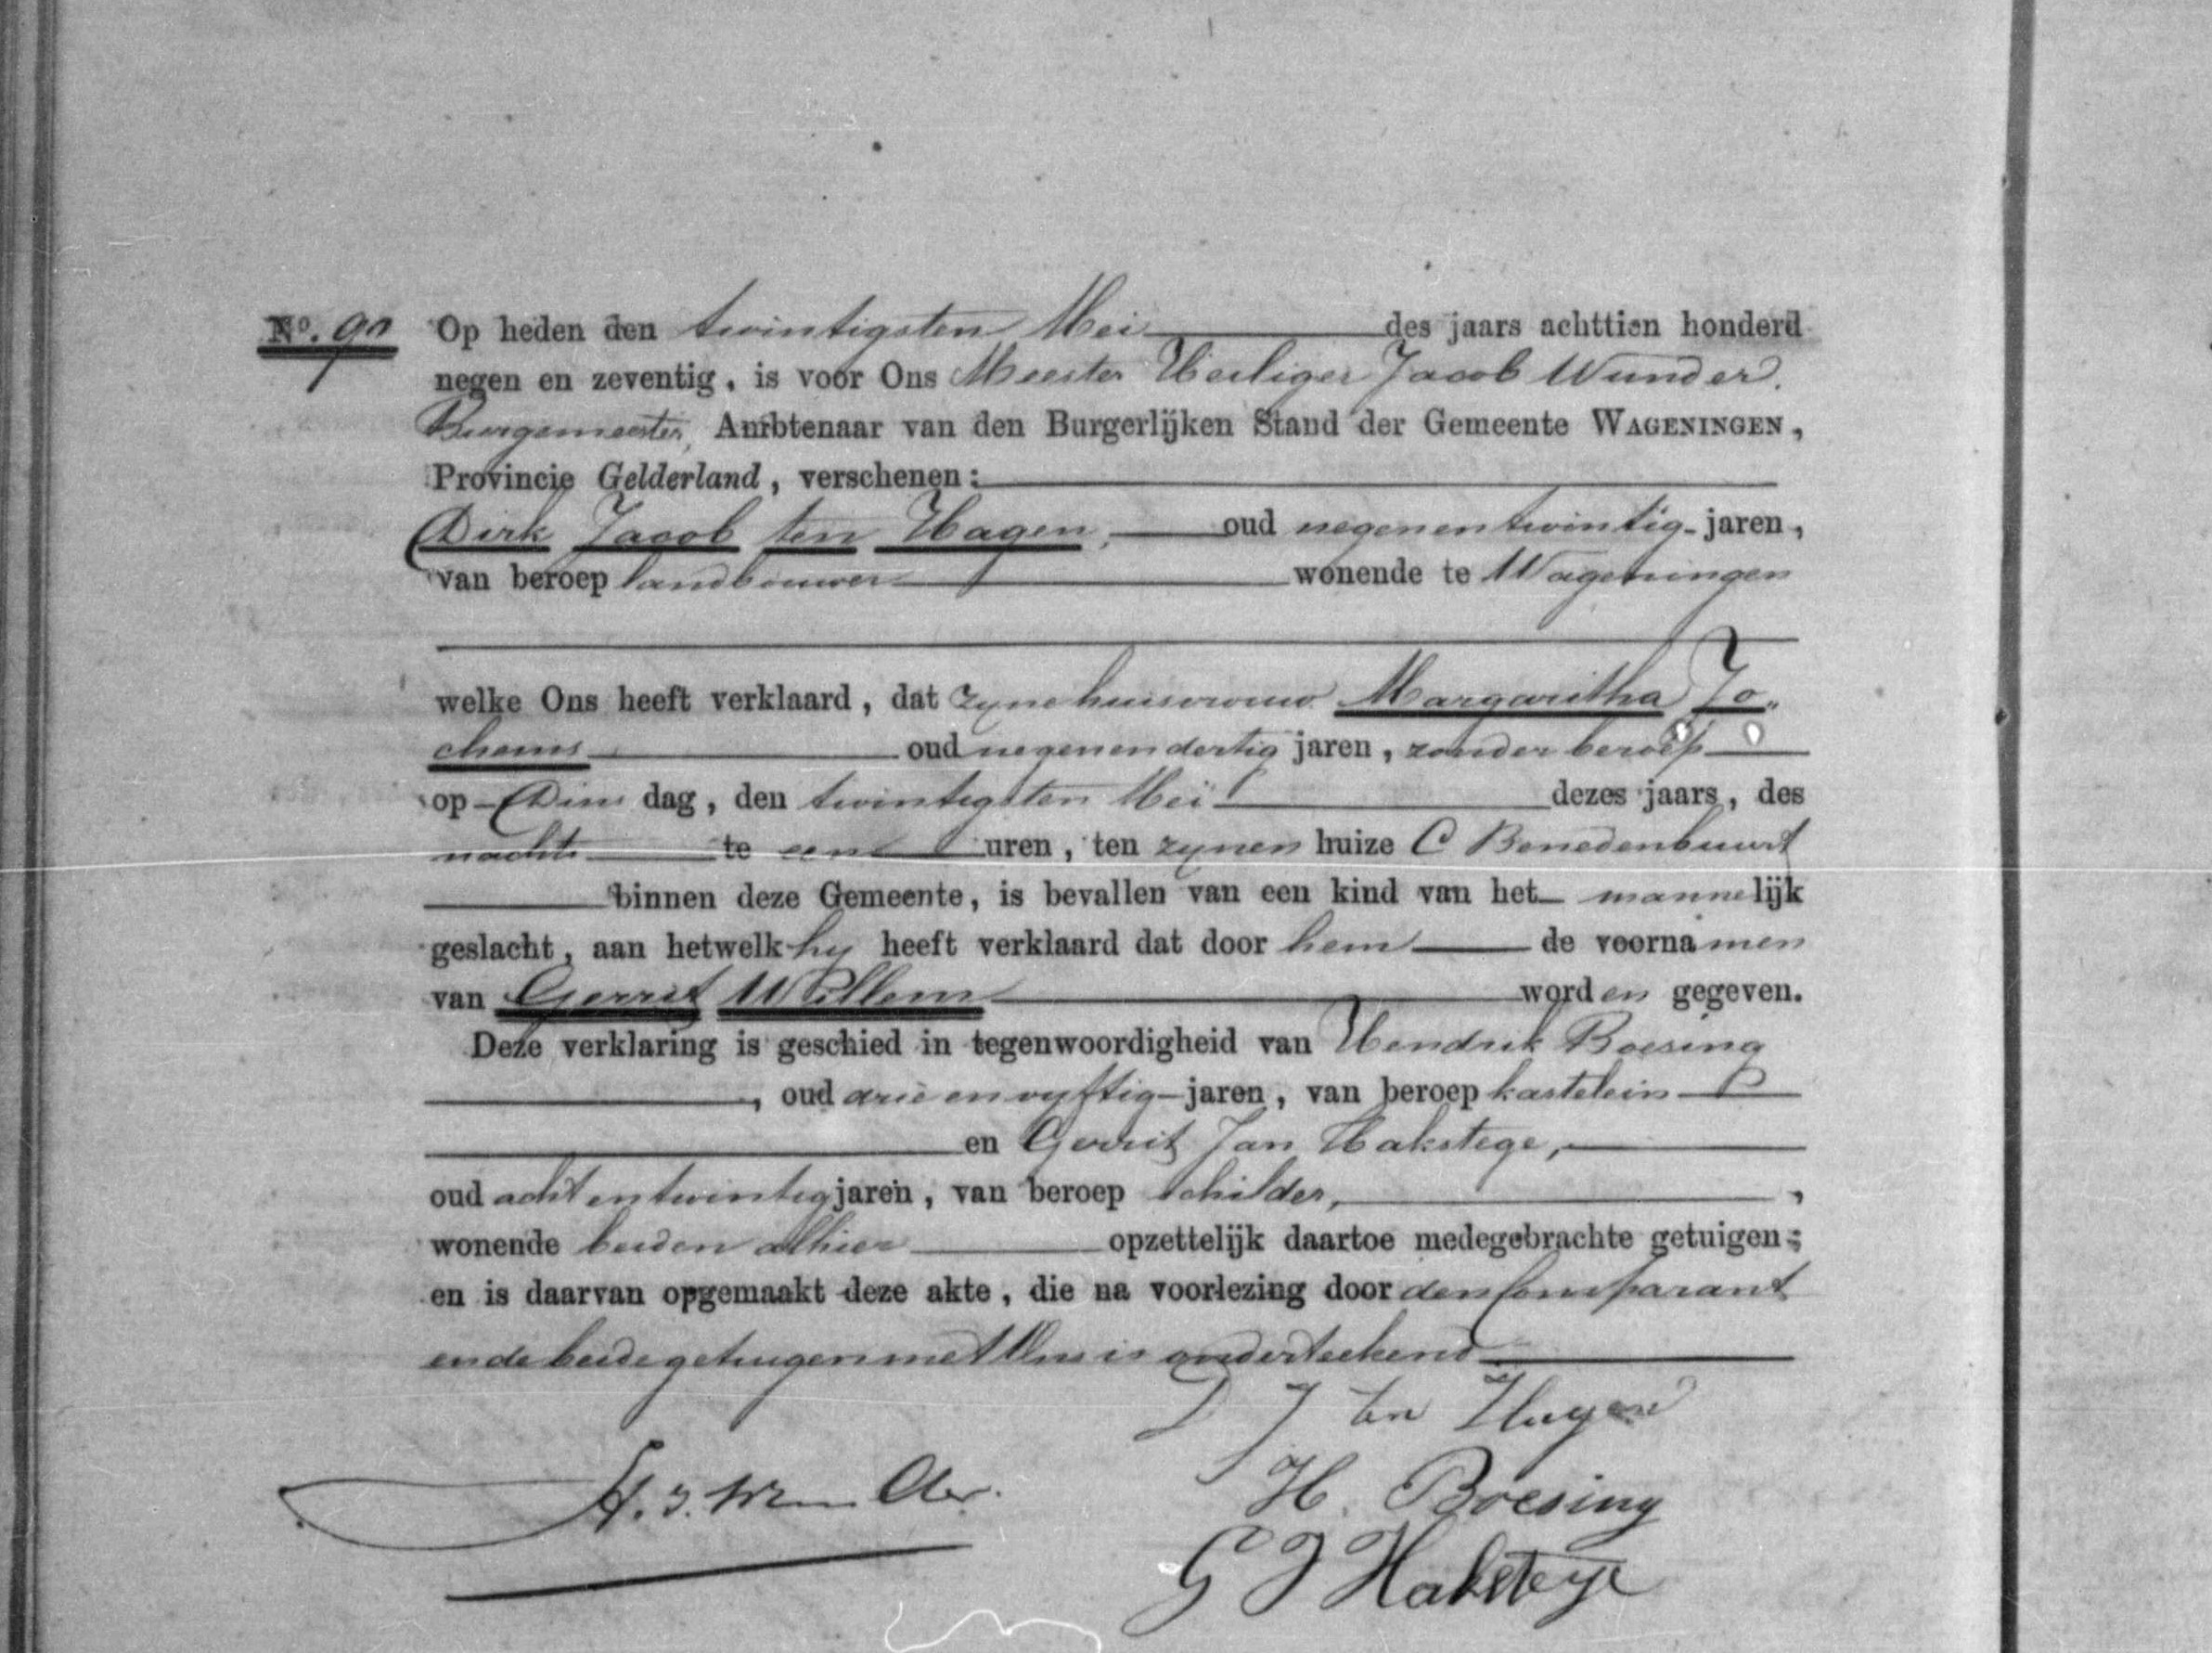 No. 90 Op heden den twintigsten Mei des jaars achttien honderd
negen en zeventig, is voor Ons Meester Heiliger Jacob Wunder,
Burgemeester, Ambtenaar van den Burgerlijken Stand der Gemeente WAGENINGEN,
Provincie Gelderland, verschenen:
Dirk Jacob ten Hagen, oud negenentwintig jaren,
van beroep landbouwer wonende te Wageningen
welke Ons heeft verklaard, dat zyne huisvrouw Margaritha Jo„
chems oud negenendertig jaren, zonder beroep
op Dins dag, den twintigsten Mei dezes jaars, des
nachts te een uren, ten zynen huize C Benedenbuurt
binnen deze Gemeente, is bevallen van een kind van het mannelijk
geslacht, aan hetwelk hy heeft verklaard dat door hem de voornamen
van Gerrit Willem worden gegeven.
Deze verklaring is geschied in tegenwoordigheid van Hendrik Boesing
, oud drie en vyftig jaren, van beroep kastelein
en Gerrit Jan Hakstege,
oud acht en twintig jaren, van beroep schilder, ,
wonende beiden alhier opzettelijk daartoe medegebrachte getuigen;
en is daarvan opgemaakt deze akte, die na voorlezing door den Comparant
en de beide getuigen met Ons is onderteekend
D J ten Hagen
H. J. Wunder.
H. Boesing
G J Hakstege